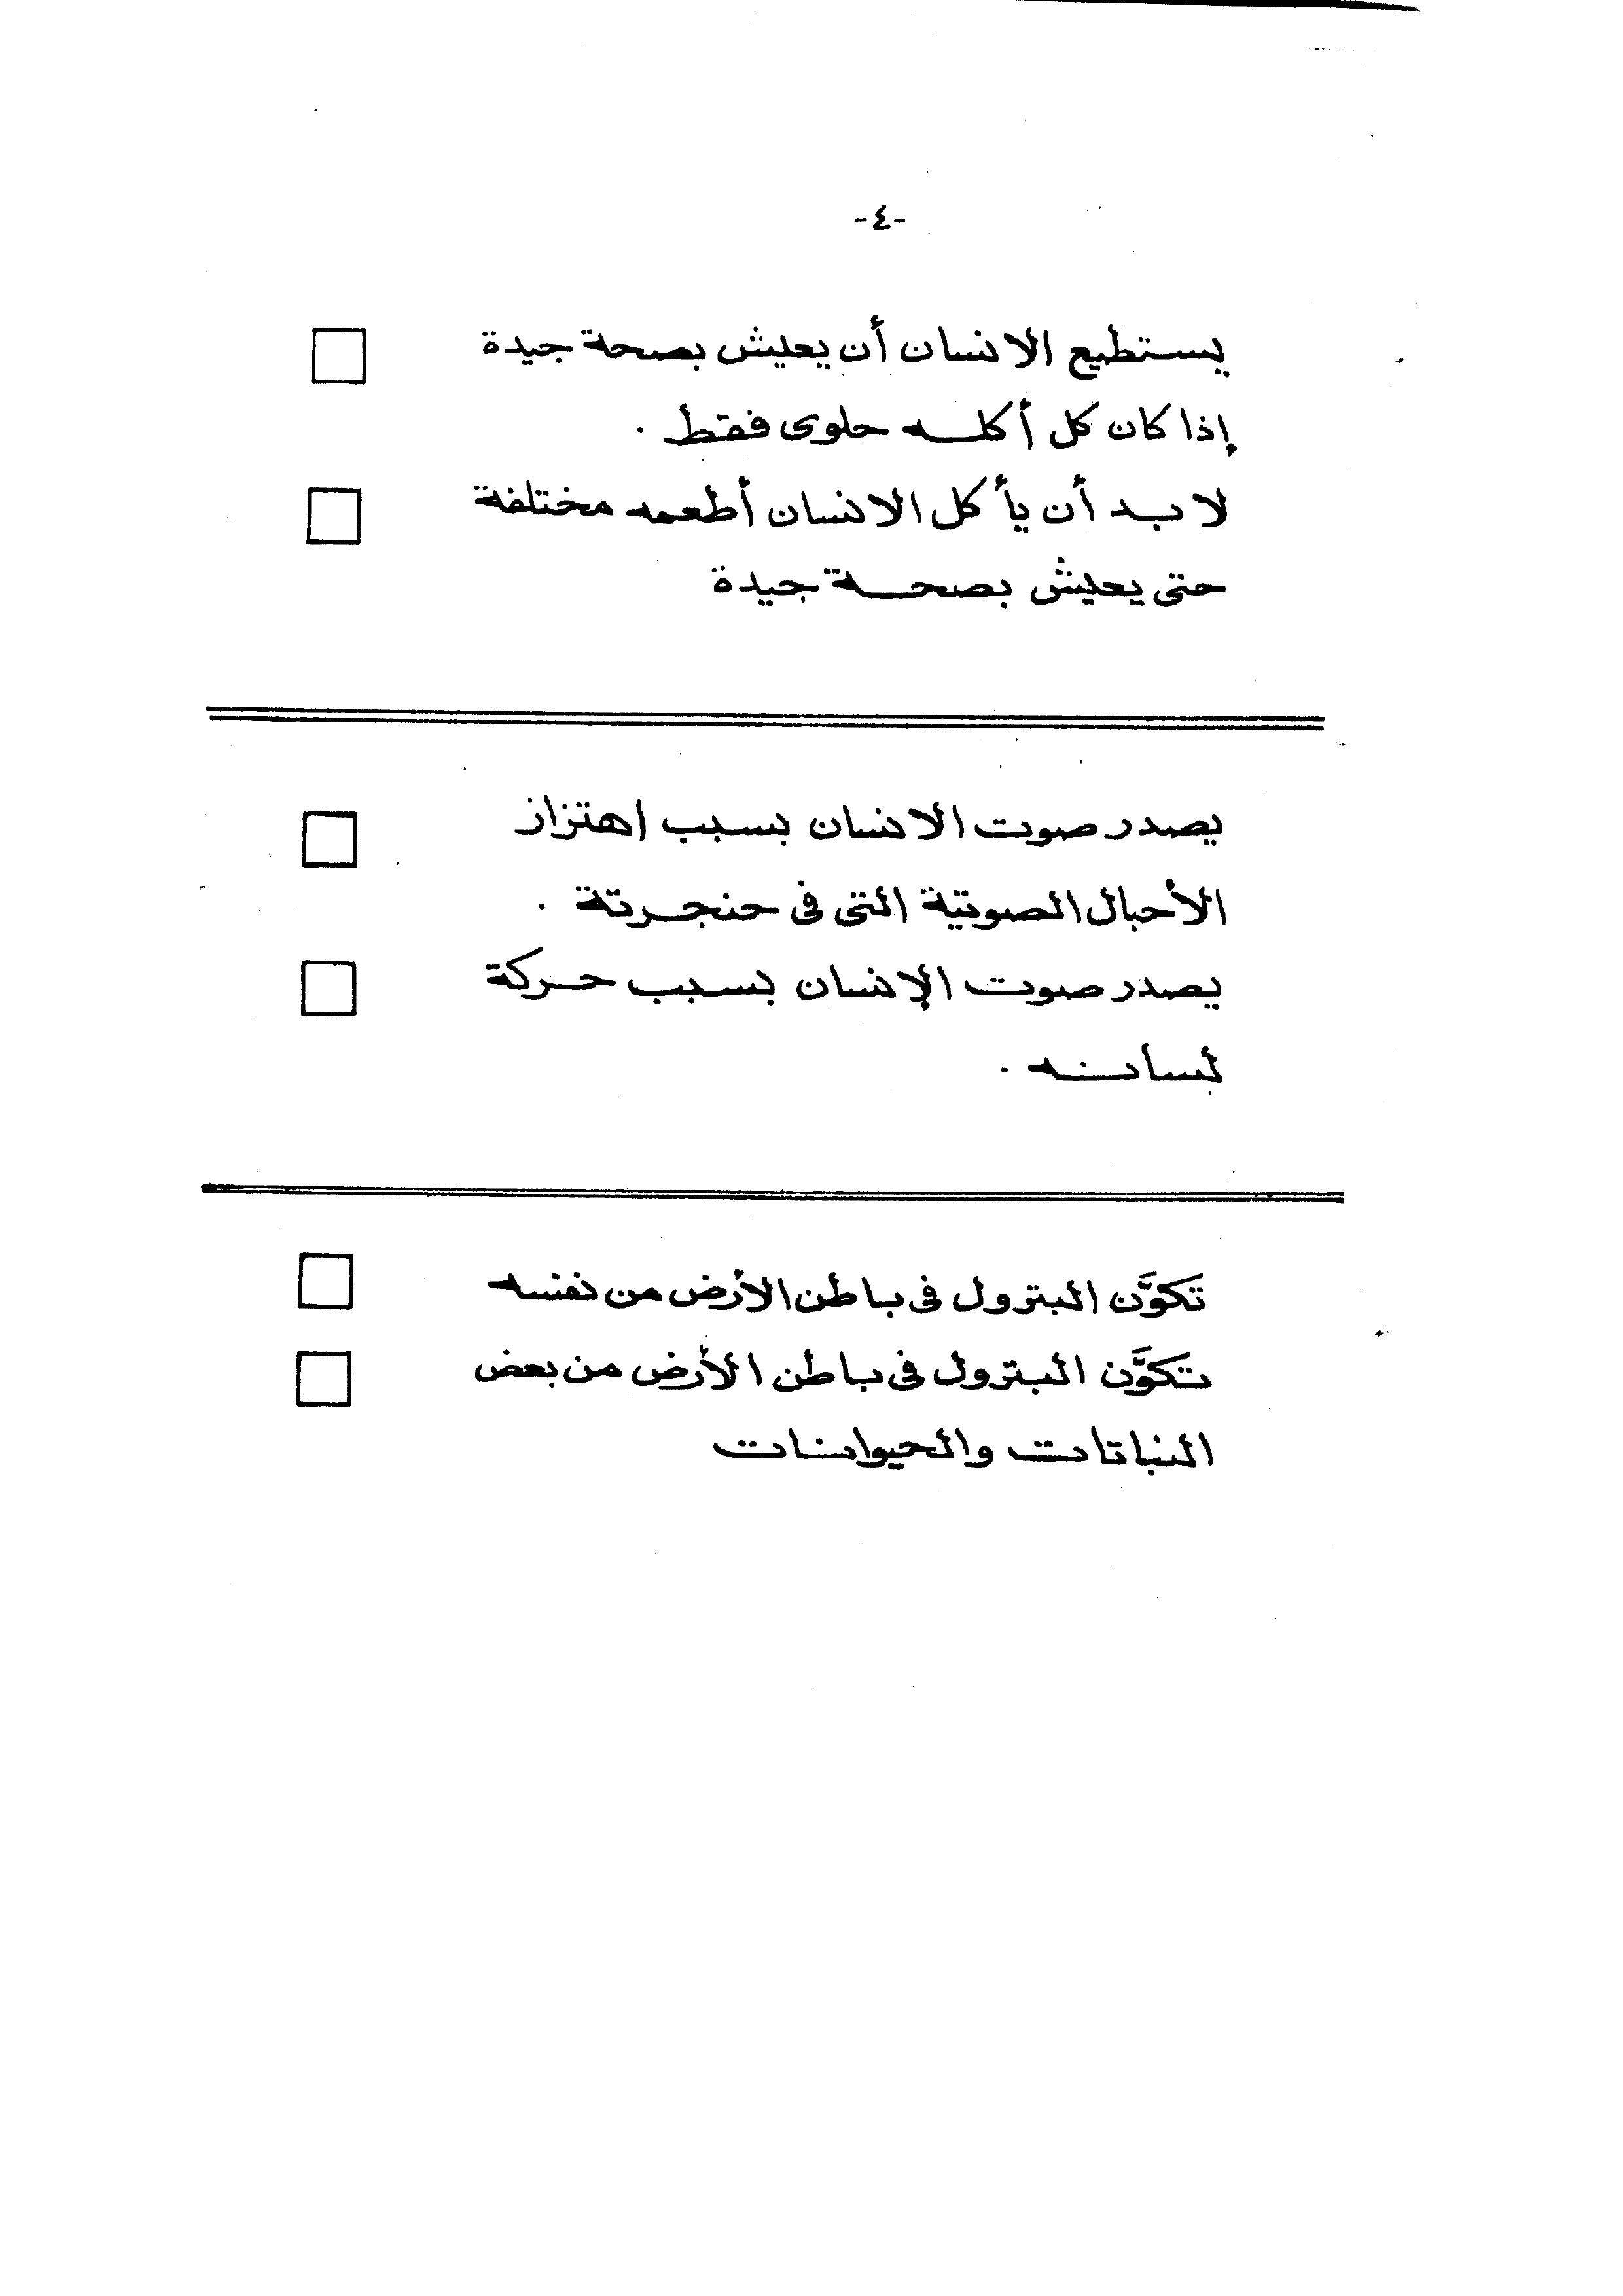 -٤-
يستطيع الانسان أن يعيش بصحة جيدة
إذا كان كل أكله حلوى فقط .
لا بد أن يأكل الانسان أطعمه مختلفة
حتى يعيش بصحة جيدة
يصدر صوت الانسان بسبب اهتزاز
الأحبال الصوتية التى فى حنجرتة .
يصدر صوت الإنسان بسبب حركة
لسانه .
تكوَّن البترول فى باطن الأرض من نفسه
تكوَّن البترول فى باطن الأرض من بعض
النباتات والحيوانات